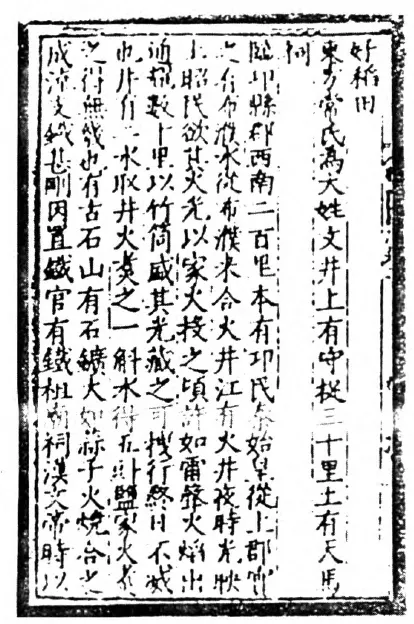 好稻田
東方常氏為大姓文井上有守捉三十里上有天馬
祠
臨邛縣郡西南二百里本有邛民秦始皇從上郡實
之有布濮水從布濮來合火井江有火井夜時光映
上昭民欲其火先以家火投之頃許如雷聲火焰出
通耀數十里以竹筒盛其光藏之可拽行終日不滅
也井有二水取井火煮之一斛水得五斗鹽家火煮
之得無幾也有古石山有石鑛大如蒜子火燒合之
成流支鐵甚剛因置鐵官有鐵祖廟祠漢文帝時以